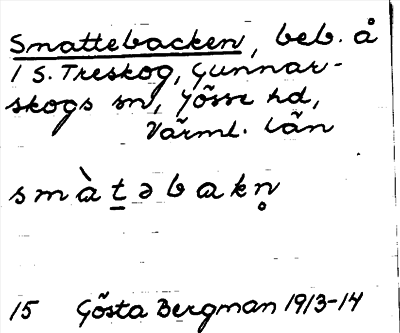 Smattebacken, beb. å
1 S. Treskog, Gunnar-
skogs sn, Jösse hd,
Värml. län
s m à t̲ ə b a k n̥
15 Gösta Bergman 1913-14